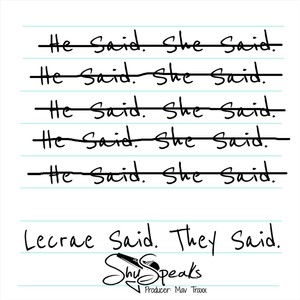 He Said. She Said.
He Said. She Said.
He Said. She Said.
He Said. She Said.
He Said. She Said.
Lecrae Said. They Said.
ShySpeaks
Producer: Mav Traxx